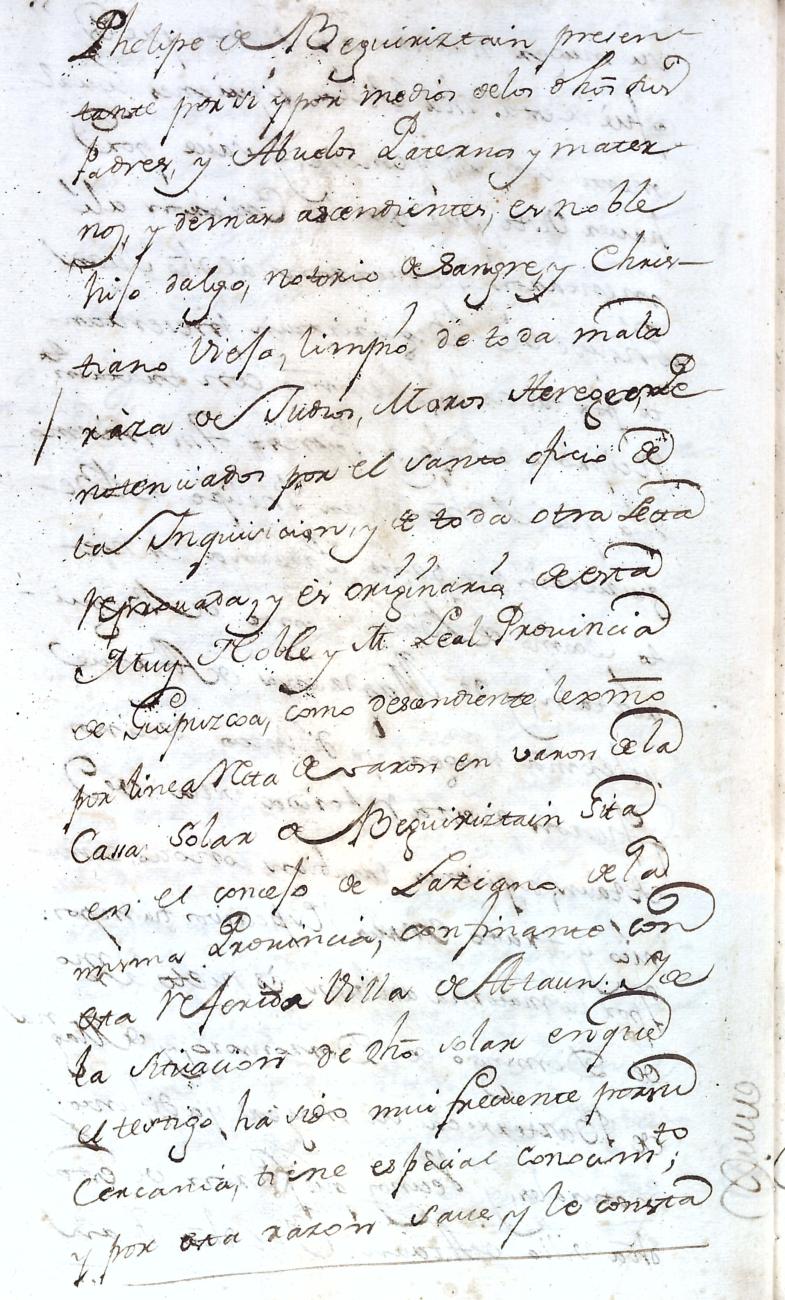 Phelipe de Beguiriztain presen-
tante por si y por medio de los dhos sus
Padres, y Abuelos Paternos y mater-
nos, y demas ascendientes, es noble
hijo dalgo, notorio de sangre, y Chris-
tiano Viejo, limpio de toda mala
raza de Judios, Moros Hereges, Pe-
nitenciados por el santo oficio de
la Inquisicion, y de toda otra Secta
reprouada, y es originario de esta
Muy Noble y M. Leal Provincia
de Guipuzcoa, como descendiente lexmo
por linea Recta de varon en varon de la
Cassa solar de Beguiriztain Sita
en el concejo de Lazcano de la
misma Provincia, confinante con
esta referida Villa de Ataun. Y de
la situacion de dho solar en que
el testigo, ha sido mui frecuente por su
Cercania, tiene especial conocimto;
y por esta razon save, y le consta